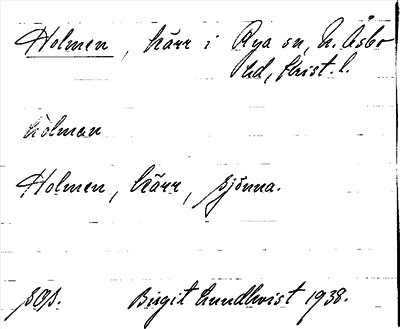 Holmen, kärr i Rya sn, N. Åsbo
hd, Krist. l.
holman
Holmen, kärr, sjönna.
SOS. Birgit Lundkvist 1938.